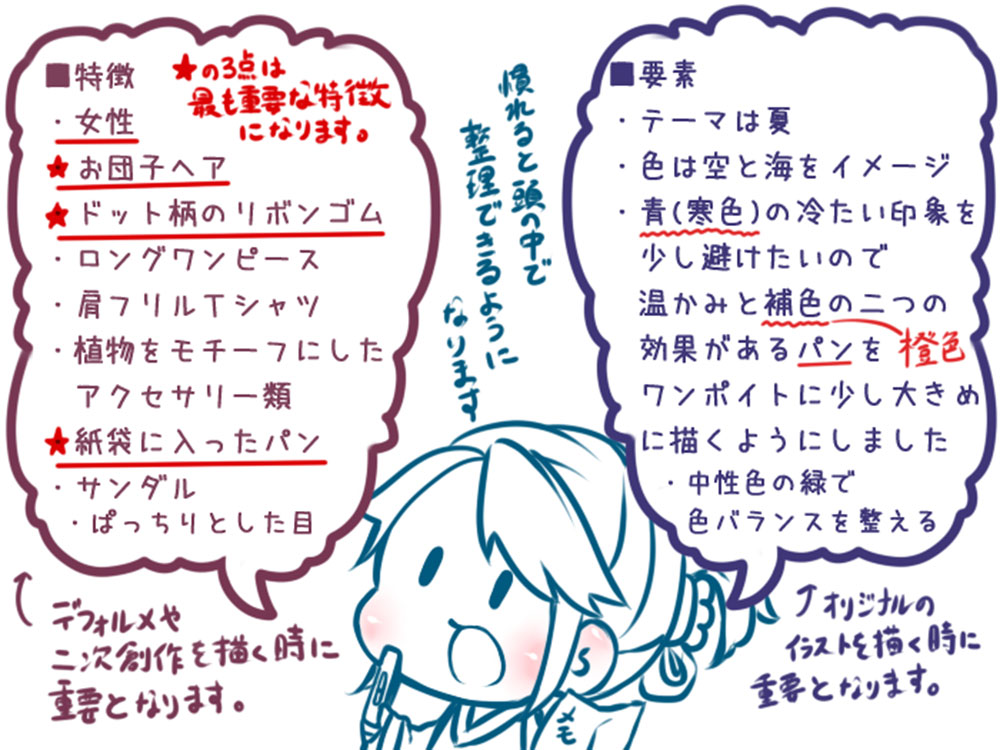 ■特徴
★の3点は
最も重要な特徴
になります。
・女性
★お団子ヘア
★ドット柄のリボンゴム
・ロングワンピース
・肩フリルTシャツ
・植物をモチーフにした
アクセサリー類
★紙袋に入ったパン
・サンダル
・ぱっちりとした目
デフォルメや
二次創作を描く時に
重要となります。
慣れると頭の中で
整理できるように
なります
■要素
・テーマは夏
・色は空と海をイメージ
・青(寒色)の冷たい印象を
少し避けたいので
温かみと補色の二つの
効果があるパンを
橙色
ワンポイトに少し大きめ
に描くようにしました
・中性色の緑で
色バランスを整える
オリジナルの
イラストを描く時に
重要となります。
メモ